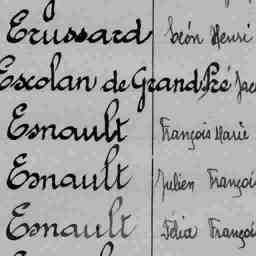 Erussard Léon Henri
Escolan de GrandPré Jac
Esnault François Marie
Esnault Julien Françoi
Esnault Félix Françoi